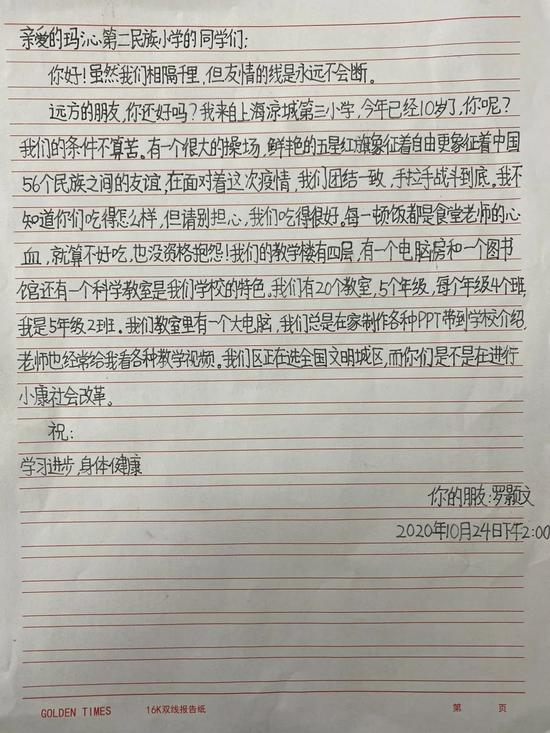 亲爱的玛沁第二民族小学的同学们:
你好!虽然我们相隔千里,但友情的线是永远不会断。
远方的朋友,你还好吗?我来自上海凉城第三小学,今年已经10岁了,你呢?
我们的条件不算苦。有一个很大的操场,鲜艳的五星红旗象征着自由更象征着中国
56个民族之间的友谊,在面对着这次疫情,我们团结一致,手拉手战斗到底。我不
知道你们吃得怎么样,但请别担心,我们吃得很好。每一顿饭都是食堂老师的心
血,就算不好吃,也没资格抱怨!我们的教学楼有四层,有一个电脑房和一个图书
馆还有一个科学教室是我们学校的特色。我们有20个教室,5个年级,每个年级4个班,
我是5年级2班。我们教室里有一个大电脑,我们总是在家制作各种PPT带到学校介绍,
老师也经常给我看各种教学视频。我们区正在进全国文明城区,而你们是不是在进行
小康社会改革。
祝:
学习进步,身体健康
你的朋友:罗颢文
2020年10月24日下午2:00
GOLDEN TIMES 16K双线报告纸 第 页